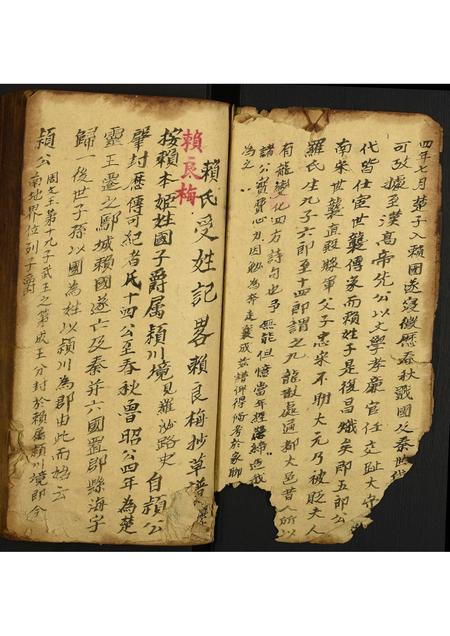 四年七月楚子入賴國遂寢微歷春秋戰國及秦時
可攷據至漢髙帝先公以文學孝廉官任交趾大守
代皆仕宦世襲傳家而賴姓子是復昌熾矣即五郎公
南宋世襲直殿將軍父子忠宋不明大元乃被貶夫人
羅氏生九子六郎至十四郎謂之九龍獻處通都大邑昔人所以
有龍變化四方詩句也予無能但憶當年
諸公費心力因勉為奔走襄成茲譜仰得稽考於
為之
賴氏受姓記畧賴良梅抄草譜
賴良梅
按賴本姬姓國子爵属頴川境見羅沙路史自頴公
肇封歷傳可紀者民十四公至春秋魯昭公四年為楚
靈王遷之鄢城賴國遂亡及秦并六國置郡縣海宇
歸一後世子孫以國為姓以頴川為郡由此而始云
頴公周文王第九子武王之弟成王分封於賴属頴川境即今
南地界位列子爵